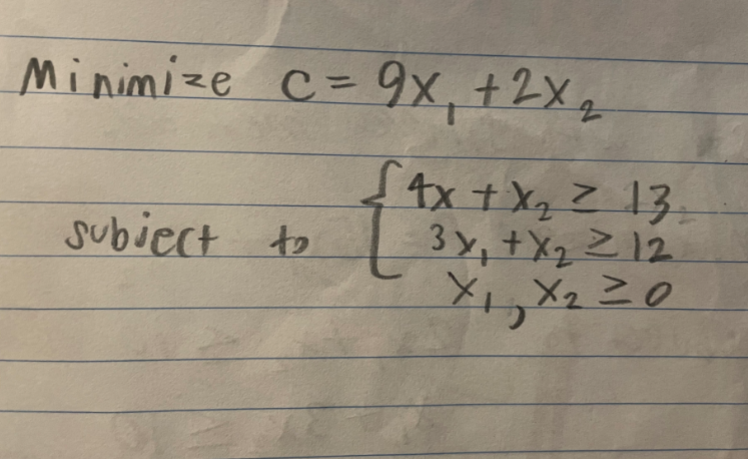 Minimize C = 9x₁ + 2x₂
subject to { 4x + x₂ ≥ 13
3x₁ + x₂ ≥ 12
x₁, x₂ ≥ 0